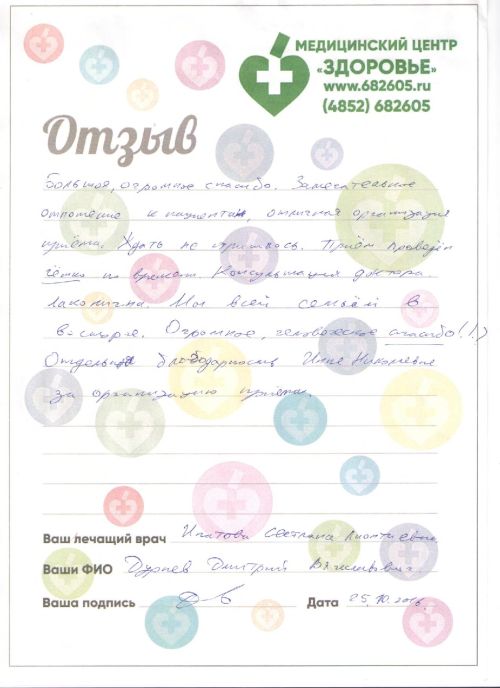 МЕДИЦИНСКИЙ ЦЕНТР
«ЗДОРОВЬЕ»
www.682605.ru
(4852) 682605
Отзыв
Большое, огромное спасибо. Замечательное
отношение к пациентам, отличная организация
приёма. Ждать не пришлось. Приём проведён
чётко по времени. Консультация доктора
лаконична. Мы всей семьёй в
восторге. Огромное, человеческое спасибо!!!)
Отдельная благодарность Инне Николаевне
за организацию приёма.
Ваш лечащий врач Светлана Леонтьевна
Ваши ФИО Дмитрий Вячеславович
Ваша подпись
Дата 25.10.2016